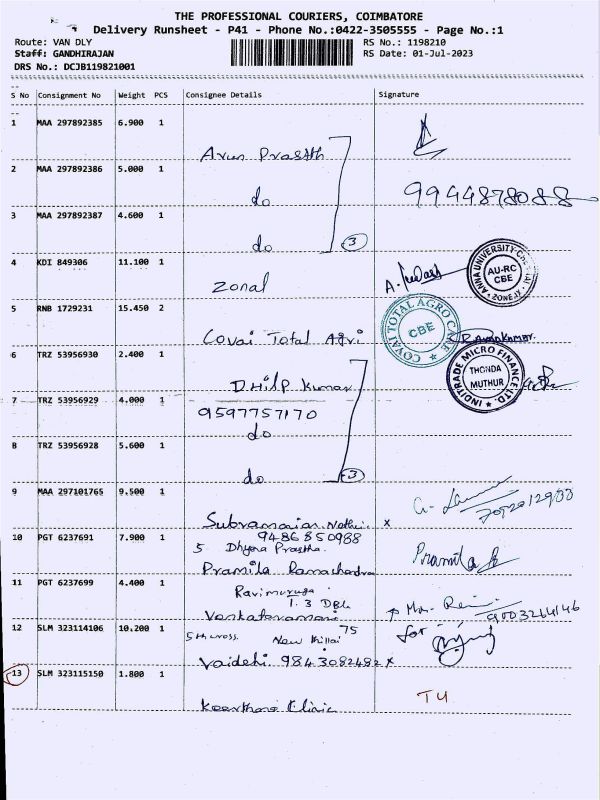 THE PROFESSIONAL COURIERS, COIMBATORE
Delivery Runsheet - P41 - Phone No.:0422-3505555 - Page No.:1
Route: VAN DLY RS No.: 1198210
Staff: GANDHIRAJAN RS Date: 01-Jul-2023
DRS No.: DCJB119821001
S No Consignment No Weight PCS Consignee Details Signature
1 MAA 297892385 6.900 1
Arun Prasath
2 MAA 297892386 5.000 1
do 9944878088
3 MAA 297892387 4.600 1
do 3
4 KDI 849306 11.100 1
Zonal A.
ANNA UNIVERSITY
AU-RC
CBE
5 RNB 1729231 15.450 2
Covai Total Agri
COVAI TOTAL AGRO CARE
CBE
Ramkumar
6 TRZ 53956930 2.400 1
D.Hilp Kumar
INDITRADE MICRO FINANCE LTD.
THONDA
MUTHUR
7 TRZ 53956929 4.000 1
9597757170
do
8 TRZ 53956928 5.600 1
do 3
9 MAA 297101765 9.500 1
x
10 PGT 6237691 7.900 1
9486850988
5 Dhyana Prastha
Pramila Ramachandra Pramila R
11 PGT 6237699 4.400 1
1.3
Venkataramani 9003264146
12 SLM 323114106 10.200 1
5th cross New 75 for
Vaidehi 9843082482 x
13 SLM 323115150 1.800 1
Keerthana Clinic